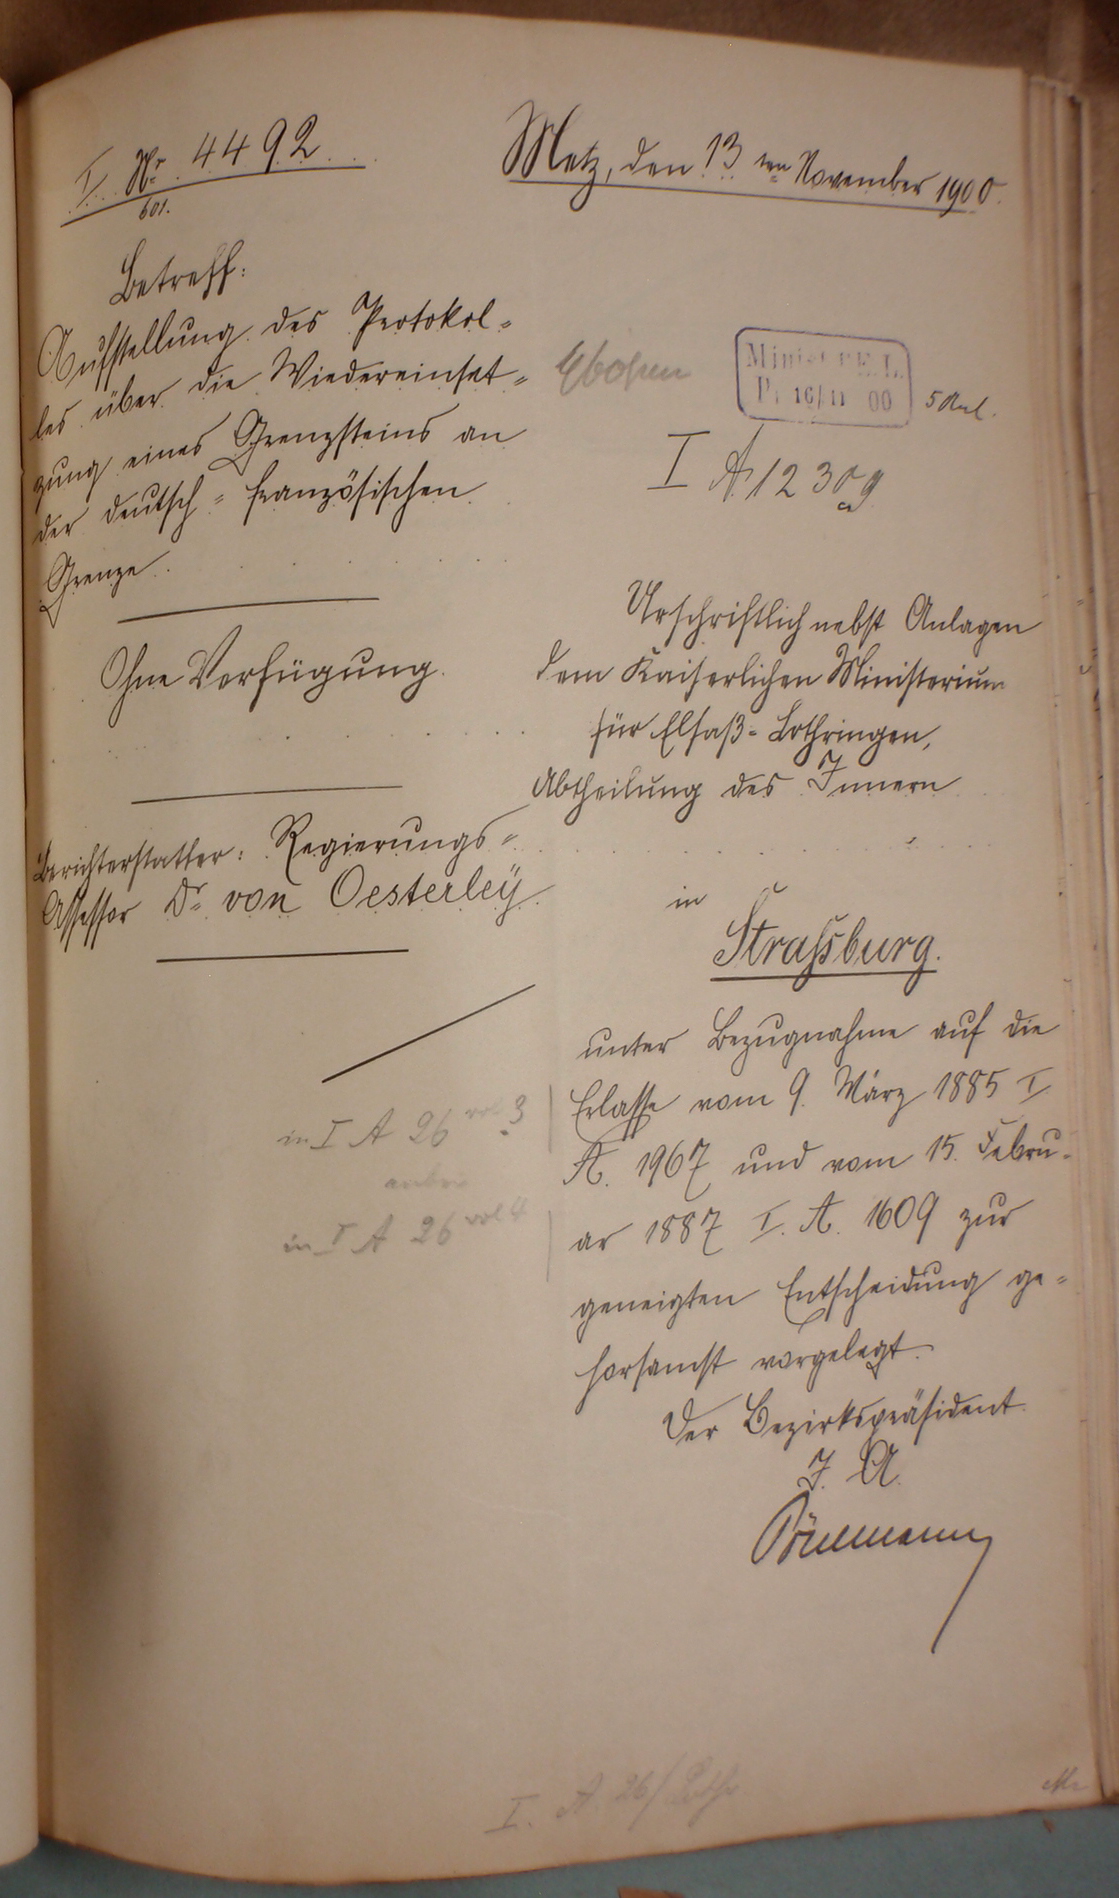 I. Nr. 4492
601.
Metz, den 13ten November 1900.
Betreff:
Aufstellung des Protokol-
les über die Wiedereinset-
zung eines Grenzsteins an
der deutsch-französischen
Grenze.
Ohne Verfügung.
Berichterstatter: Regierungs-
Assessor Dr. von Oesterley.
in I A 26 vol 3
in I A 26 vol 4
Minist. f. E. L.
Pr. 16/11 00
5 Anl.
I A 12309
Urschriftlich nebst Anlagen
dem Kaiserlichen Ministerium
für Elsaß-Lothringen,
Abtheilung des Innern
in
Strassburg.
unter Bezugnahme auf die
Erlasse vom 9. März 1885 I.
A. 1967 und vom 15. Febru-
ar 1887 I. A. 1609 zur
geneigten Entscheidung ge-
horsamst vorgelegt.
Der Bezirkspräsident
J. A.
I. A. 26/Lothr.